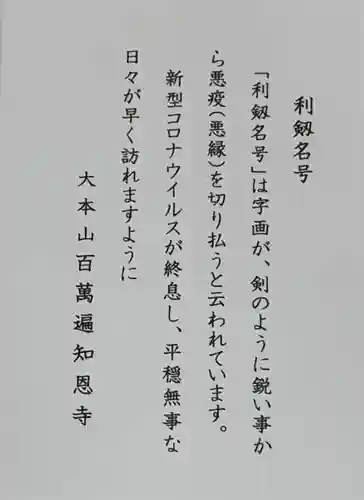 利剱名号
「利剱名号」は字画が、剣のように鋭い事か
ら悪疫(悪縁)を切り払うと云われています。
新型コロナウイルスが終息し、平穏無事な
日々が早く訪れますように
大本山百萬遍知恩寺